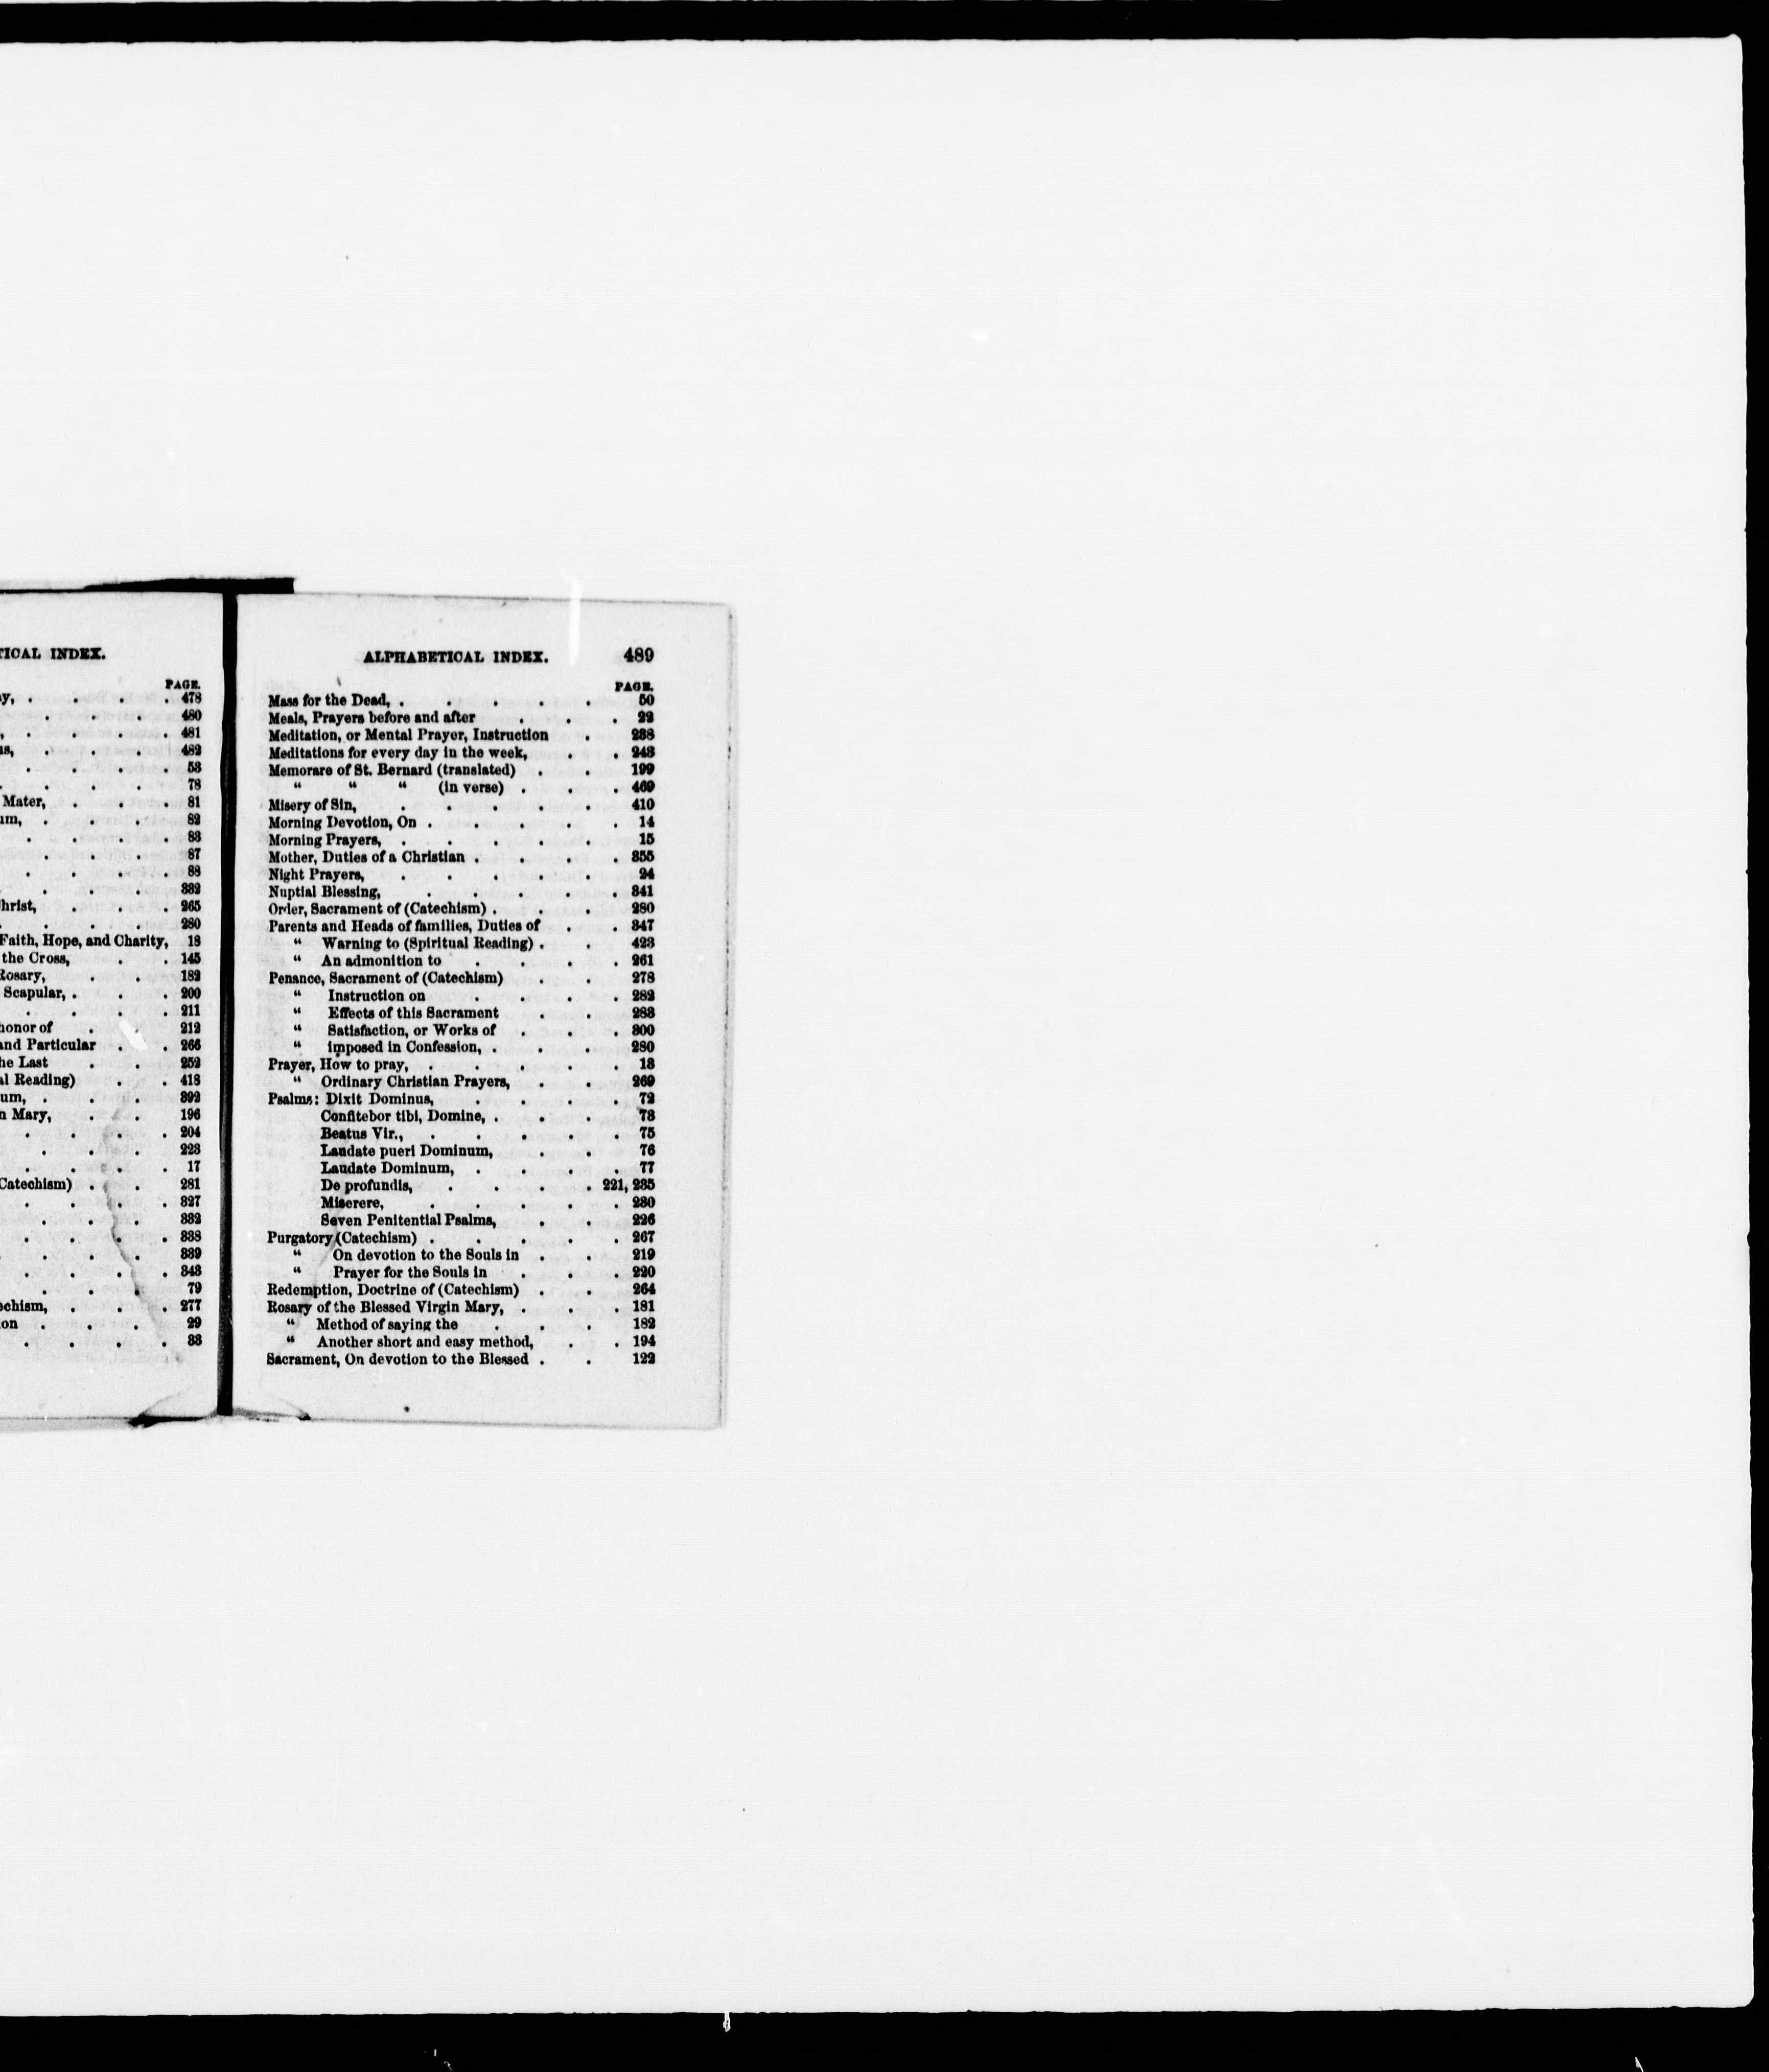 TICAL INDEX.
PAGE.
y, . . . . 478
. . . 480
, . . . . 481
ns, . . . 482
. . . . 53
. . . . 78
Mater, . . . 81
um, . . . 82
. . . . 83
. . . 87
. . . . 88
. . . . 332
hrist, . . . 265
. . . . 280
Faith, Hope, and Charity, 18
the Cross, . . 145
Rosary, . . 182
Scapular, . . . 200
. . . . 211
honor of . . 212
and Particular . . 266
he Last . . 252
al Reading) . . 418
um, . . . 392
n Mary, . . 196
. . . . 204
. . . 223
. . . . 17
Catechism) . . 281
. . . . 327
. . . 332
. . . . 338
. . . . 339
. . . . 343
. . . 79
echism, . . . 277
on . . . 29
. . . . 38
ALPHABETICAL INDEX. 489
PAGE.
Mass for the Dead, . . . . . 50
Meals, Prayers before and after . . . 22
Meditation, or Mental Prayer, Instruction . 238
Meditations for every day in the week, . . 243
Memorare of St. Bernard (translated) . . 199
" " " (in verse) . . . 469
Misery of Sin, . . . . . 410
Morning Devotion, On . . . . . 14
Morning Prayers, . . . . . 15
Mother, Duties of a Christian . . . . 355
Night Prayers, . . . . . 24
Nuptial Blessing, . . . . . 341
Order, Sacrament of (Catechism) . . . 280
Parents and Heads of families, Duties of . . 347
" Warning to (Spiritual Reading) . . 423
" An admonition to . . . . 261
Penance, Sacrament of (Catechism) . . 278
" Instruction on . . . . 282
" Effects of this Sacrament . . 283
" Satisfaction, or Works of . . . 300
" imposed in Confession, . . . 280
Prayer, How to pray, . . . . . 13
" Ordinary Christian Prayers, . . 269
Psalms: Dixit Dominus, . . . . 72
Confitebor tibi, Domine, . . . 73
Beatus Vir., . . . . . 75
Laudate pueri Dominum, . . 76
Laudate Dominum, . . . . 77
De profundis, . . . . 221, 235
Miserere, . . . . . 230
Seven Penitential Psalms, . . 226
Purgatory (Catechism) . . . . . 267
" On devotion to the Souls in . . 219
" Prayer for the Souls in . . . 220
Redemption, Doctrine of (Catechism) . . 264
Rosary of the Blessed Virgin Mary, . . . 181
" Method of saying the . . . 182
" Another short and easy method, . . 194
Sacrament, On devotion to the Blessed . . 122